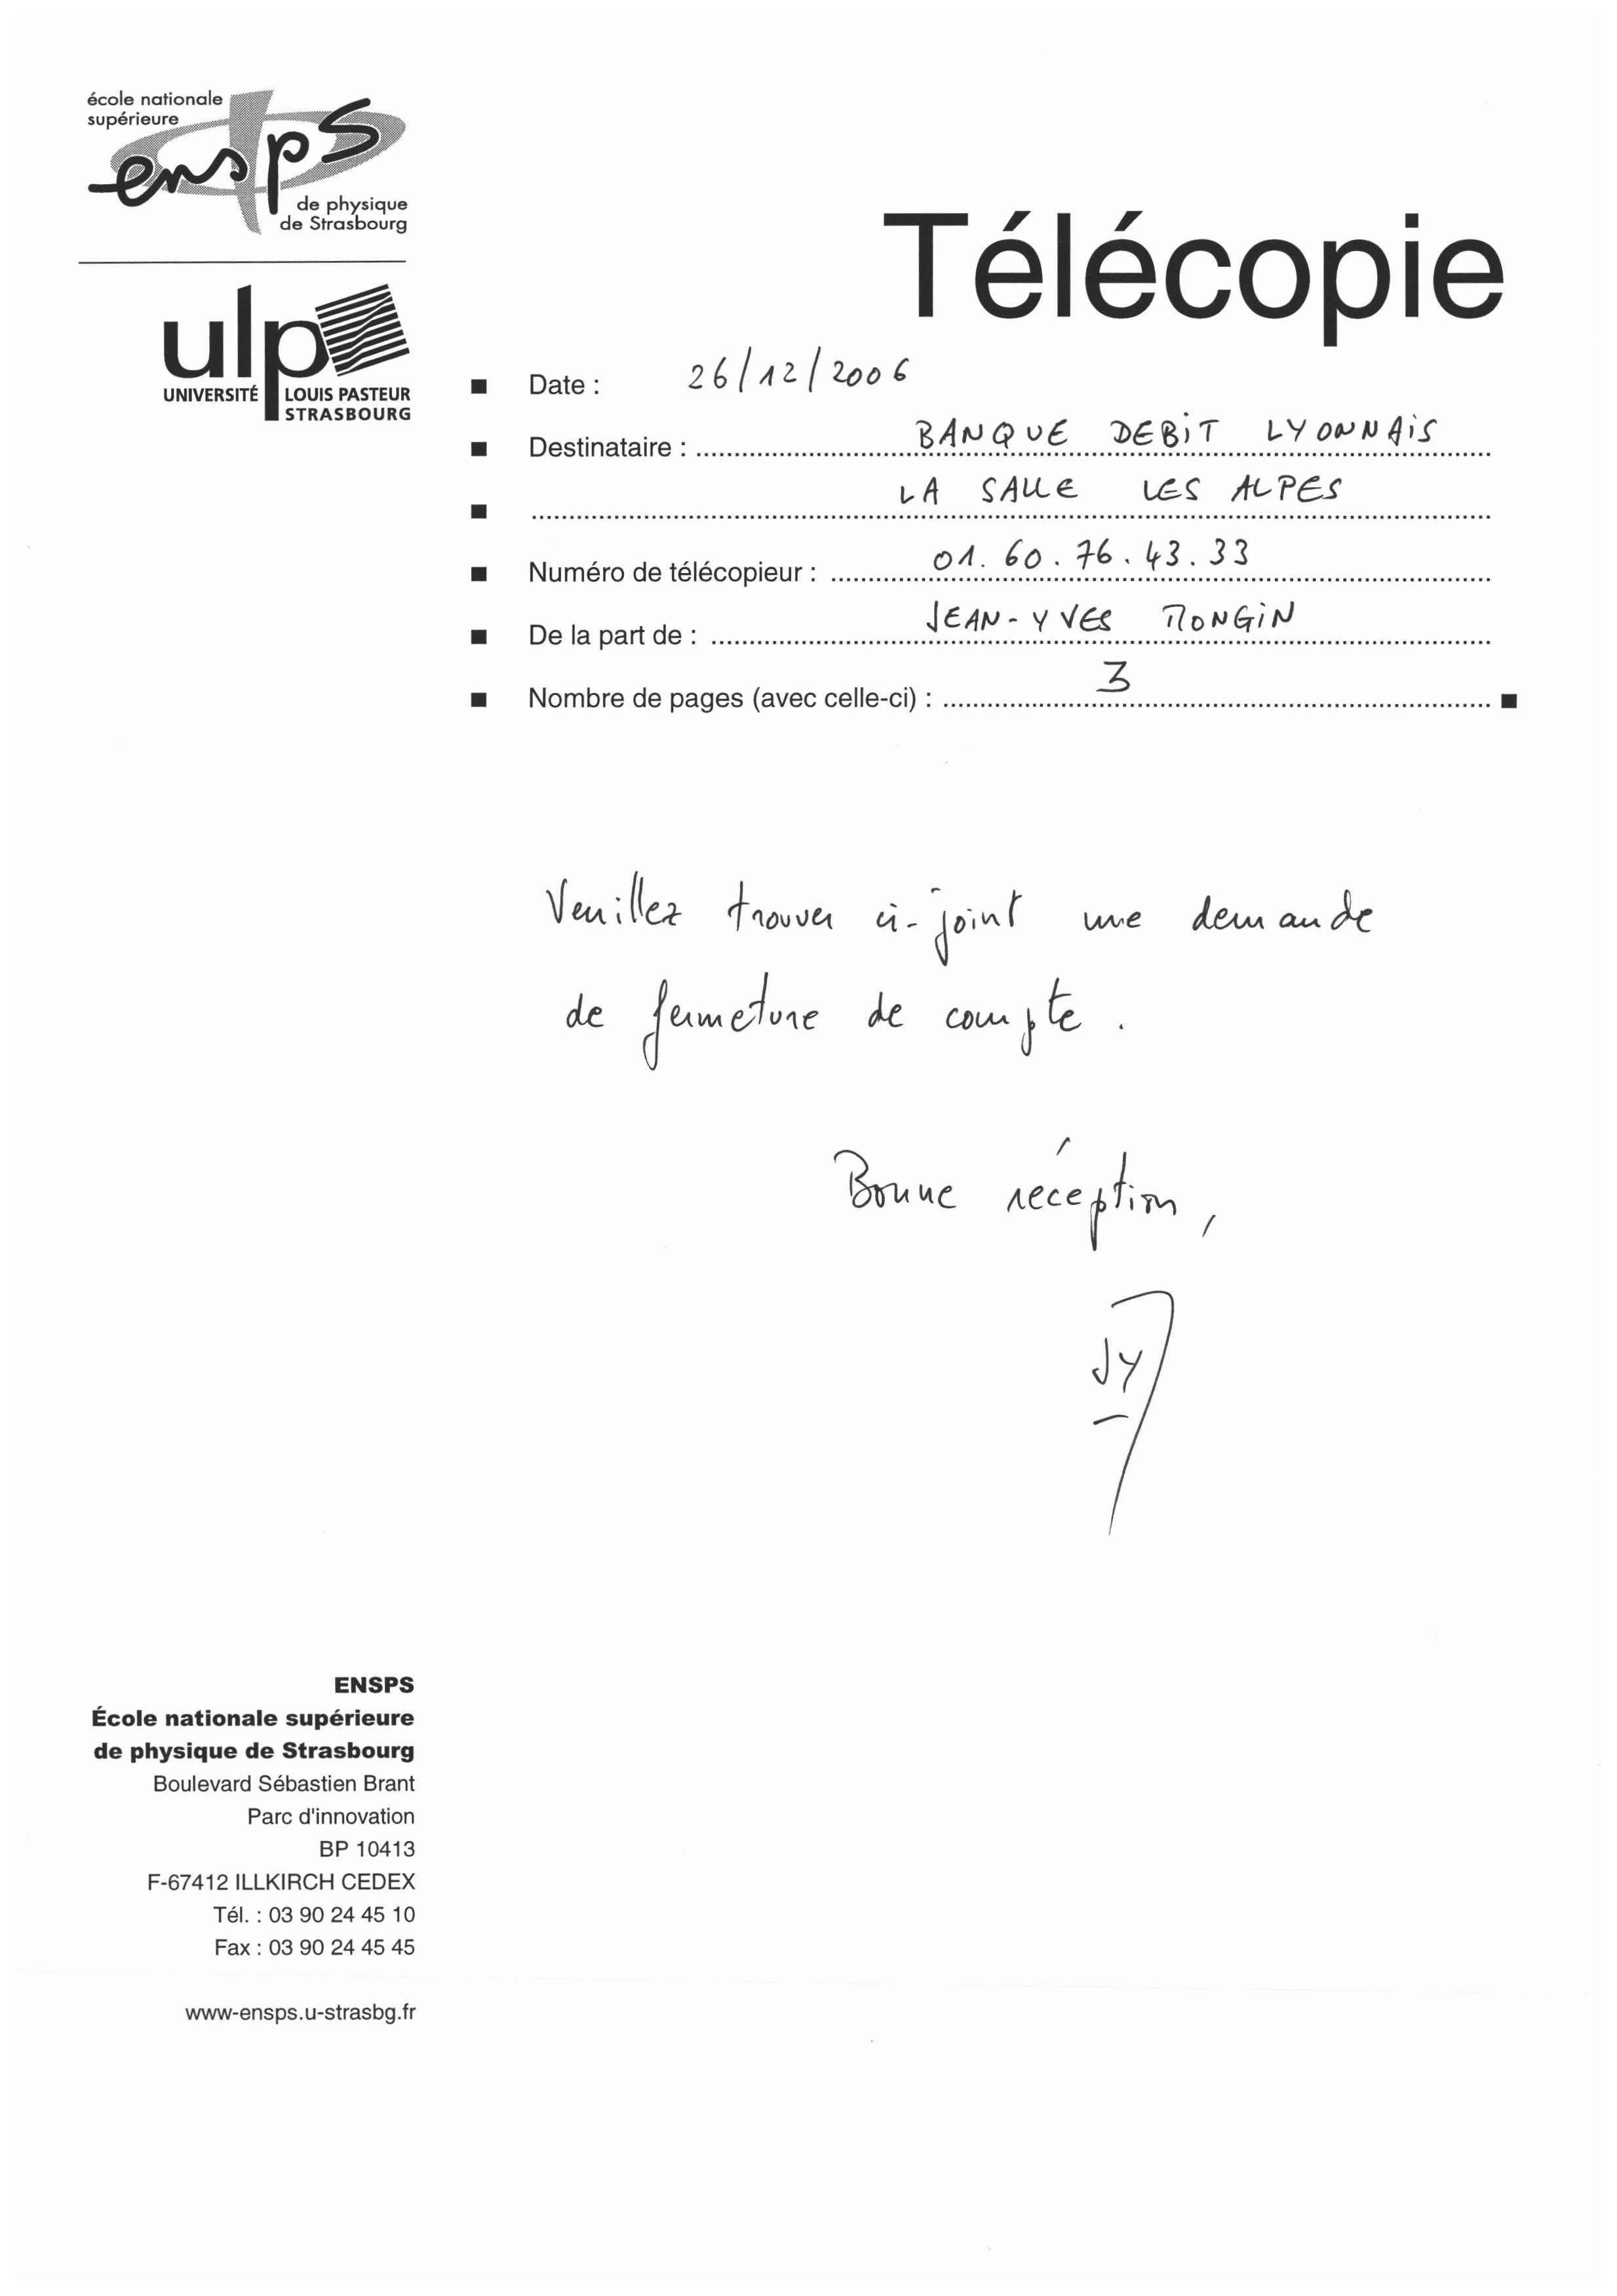 école nationale
supérieure
ensps
de physique
de Strasbourg
ulp
UNIVERSITÉ LOUIS PASTEUR
STRASBOURG
Télécopie
Date : 26/12/2006
Destinataire : BANQUE DEBIT LYONNAIS
LA SALLE LES ALPES
Numéro de télécopieur : 01.60.76.43.33
De la part de : JEAN-YVES MONGIN
Nombre de pages (avec celle-ci) : 3
Veuillez trouver ci-joint une demande
de fermeture de compte.
Bonne réception,
JY
ENSPS
École nationale supérieure
de physique de Strasbourg
Boulevard Sébastien Brant
Parc d'innovation
BP 10413
F-67412 ILLKIRCH CEDEX
Tél. : 03 90 24 45 10
Fax : 03 90 24 45 45
www-ensps.u-strasbg.fr